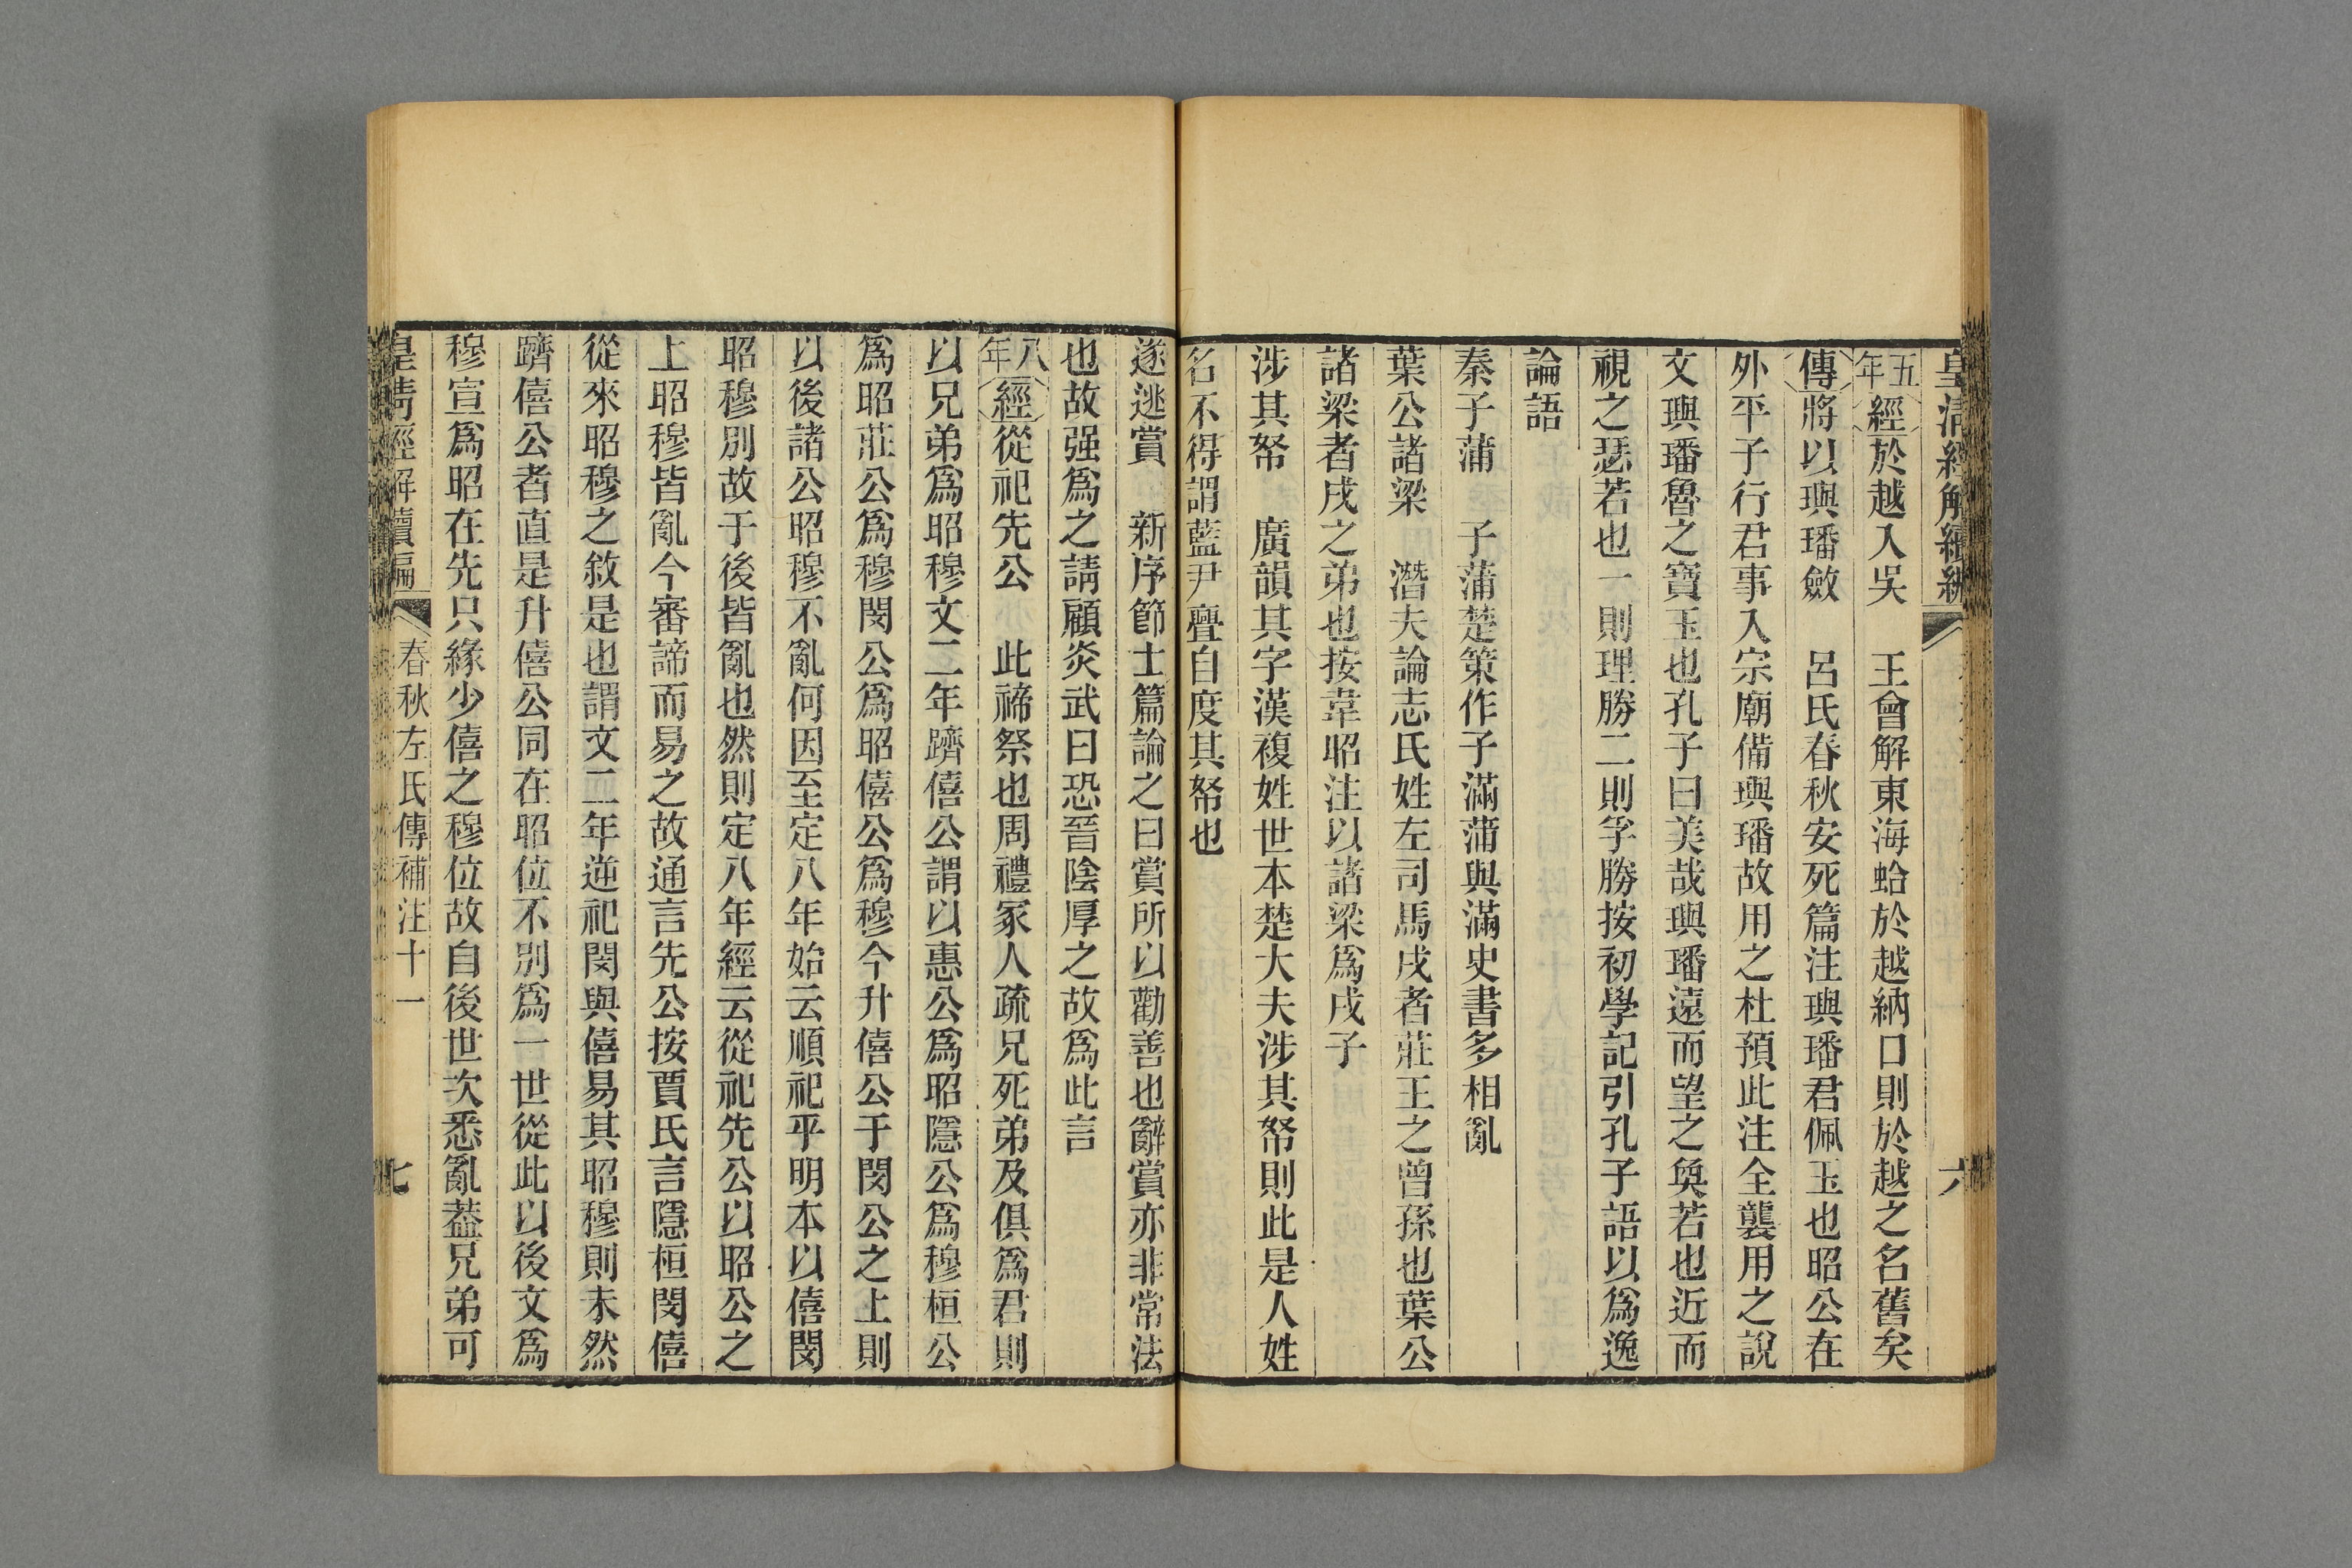 皇清經解續編
六
五年經於越入吳　王會解東海蛤於越納口則於越之名舊矣
傳將以璵璠斂　呂氏春秋安死篇注璵璠君佩玉也昭公在
外平子行君事入宗廟備璵璠故用之杜預此注全襲用之說
文璵璠魯之寶玉也孔子曰美哉璵璠遠而望之奐若也近而
視之瑟若也一則理勝二則孚勝按初學記引孔子語以爲逸
論語
秦子蒲　子蒲楚策作子滿蒲與滿史書多相亂
葉公諸梁　潛夫論志氏姓左司馬戌者莊王之曾孫也葉公
諸梁者戌之弟也按韋昭注以諸梁爲戌子
涉其帑　廣韻其字漢複姓世本楚大夫涉其帑則此是人姓
名不得謂藍尹亹自度其帑也
遂逃賞　新序節士篇論之曰賞所以勸善也辭賞亦非常法
也故强爲之請顧炎武曰恐晉陰厚之故爲此言
八年經從祀先公　此禘祭也周禮冢人疏兄死弟及俱爲君則
以兄弟爲昭穆文二年躋僖公謂以惠公爲昭隱公爲穆桓公
爲昭莊公爲穆閔公爲昭僖公爲穆今升僖公于閔公之上則
以後諸公昭穆不亂何因至定八年始云順祀乎明本以僖閔
昭穆別故于後皆亂也然則定八年經云從祀先公以昭公之
上昭穆皆亂今審諦而易之故通言先公按賈氏言隱桓閔僖
從來昭穆之敘是也謂文二年逆祀閔與僖易其昭穆則未然
躋僖公者直是升僖公同在昭位不別爲一世從此以後文爲
穆宣爲昭在先只緣少僖之穆位故自後世次悉亂葢兄弟可
皇清經解續編
春秋左氏傳補注十一
七